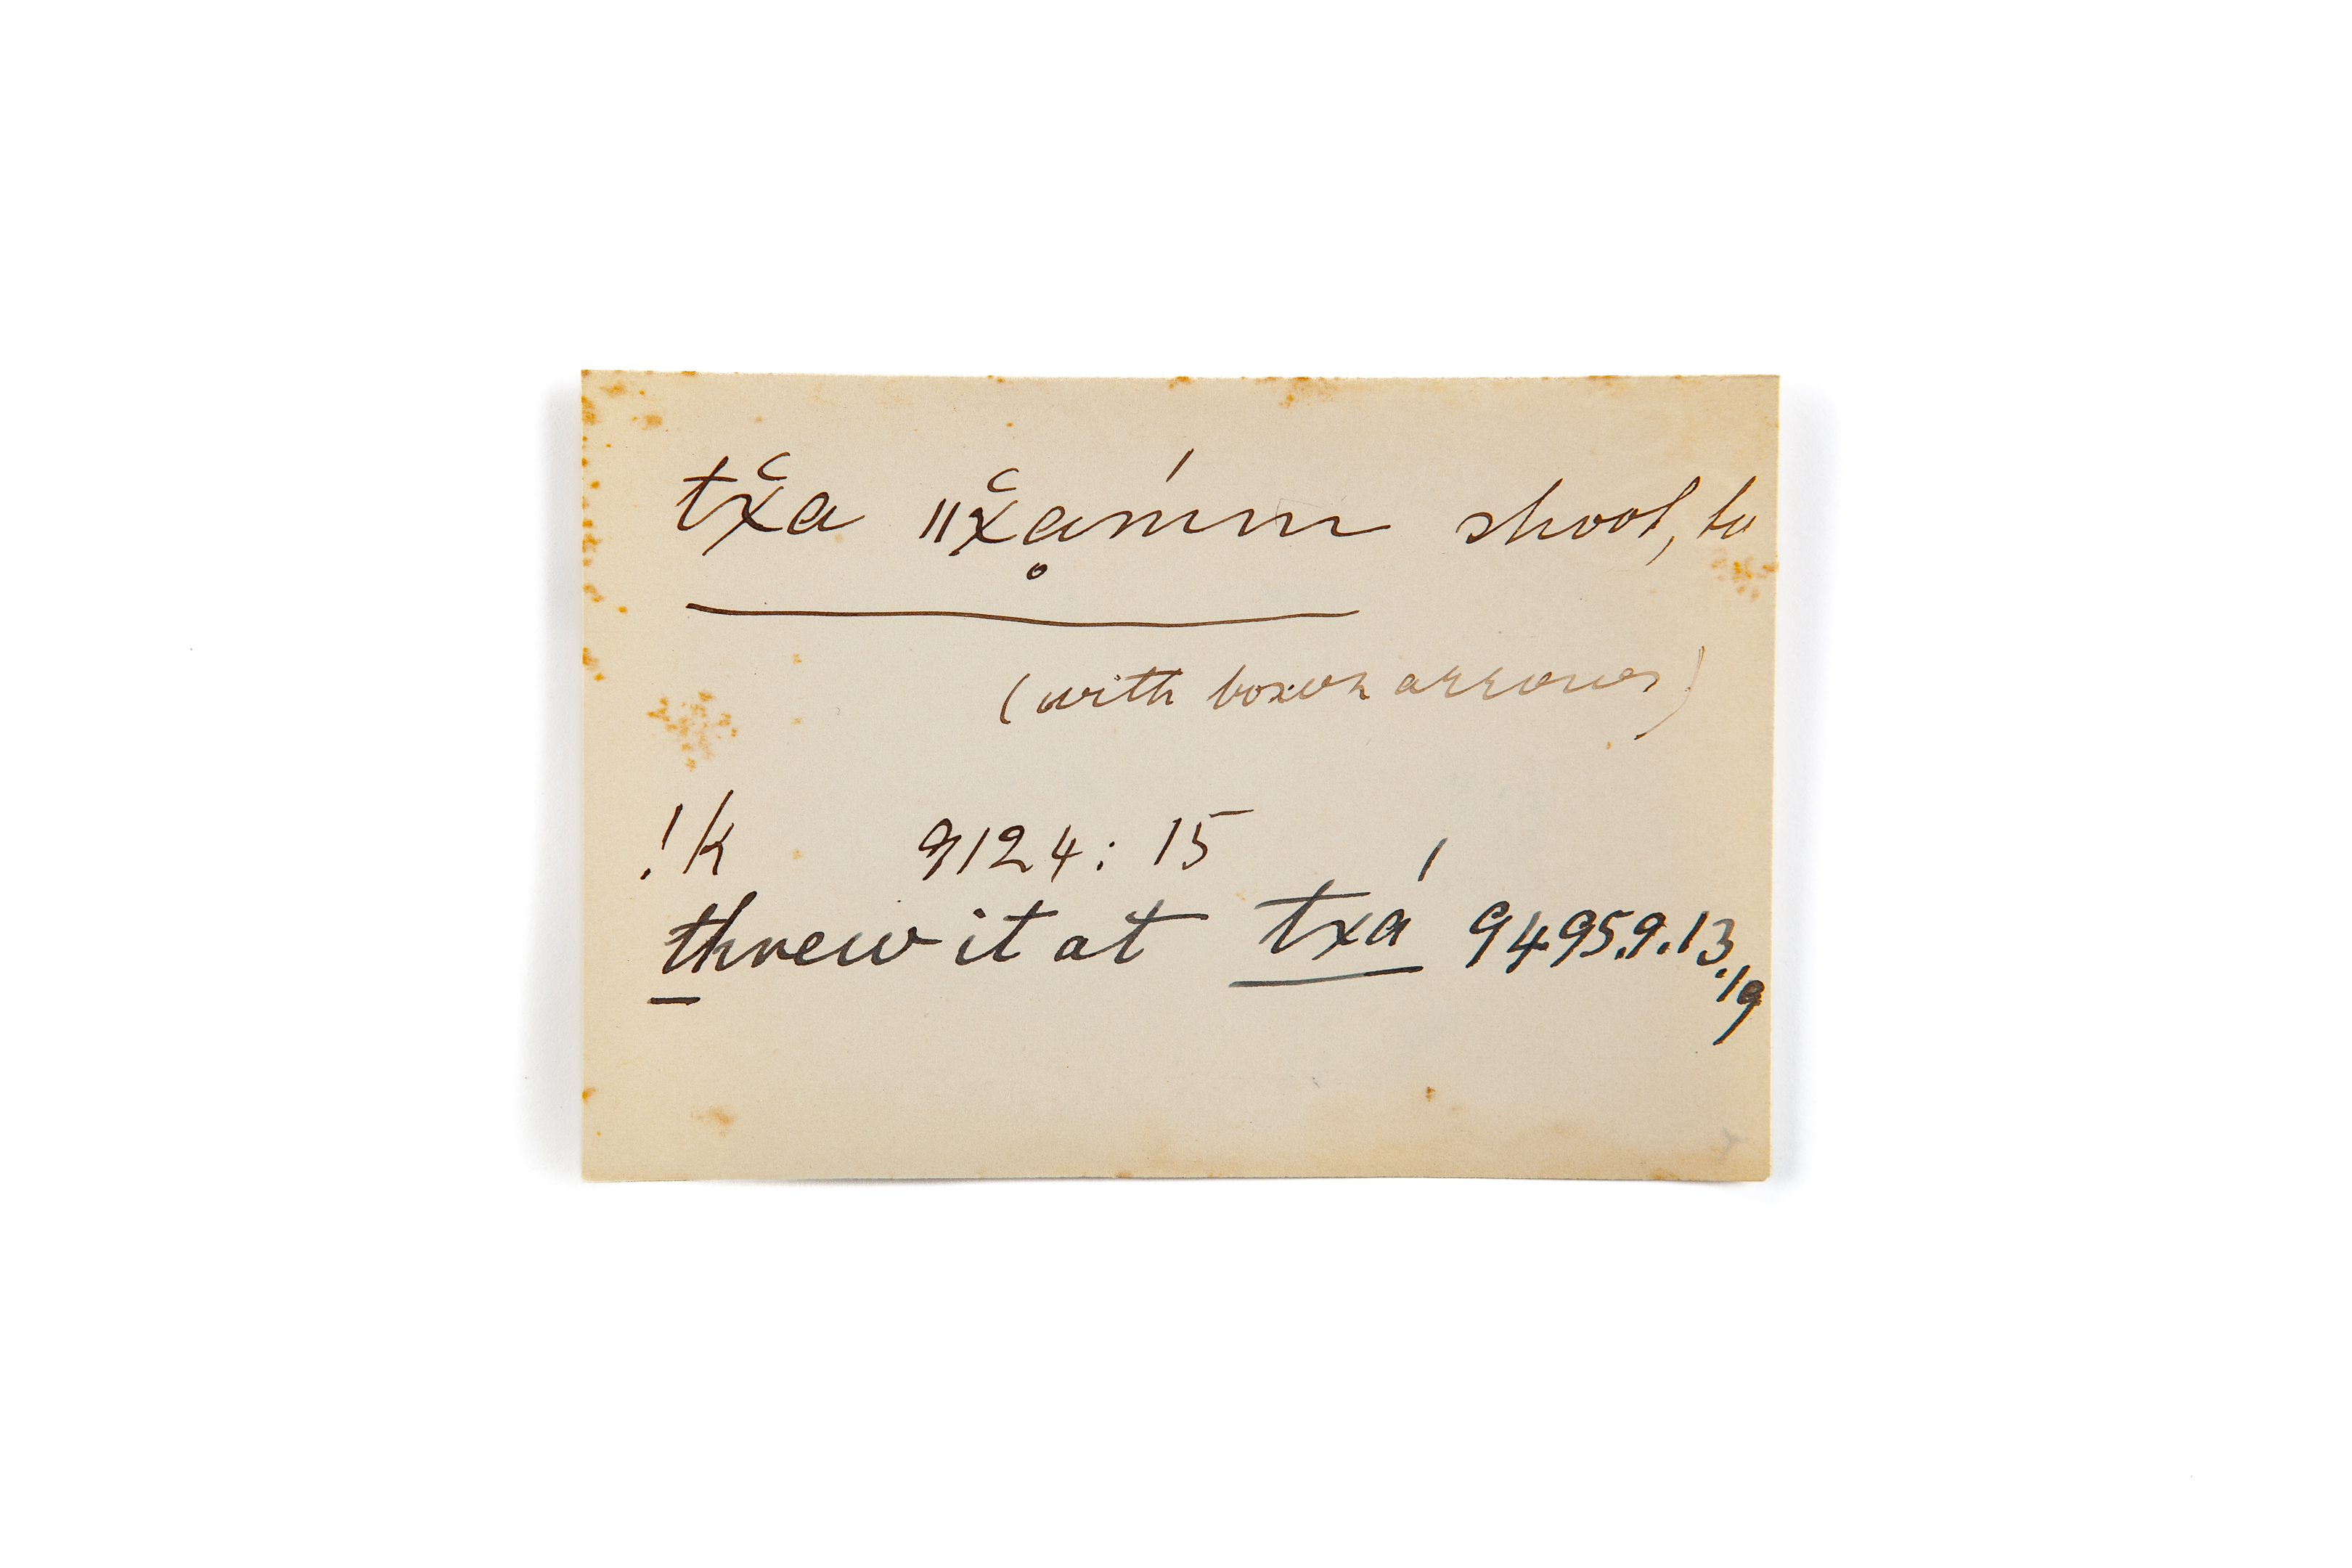 tx̆a ǁx̆ḁ́mm shoot, to
(with bow & arrows)
!k 9124: 15
threw it at txá 9495.9.13.19